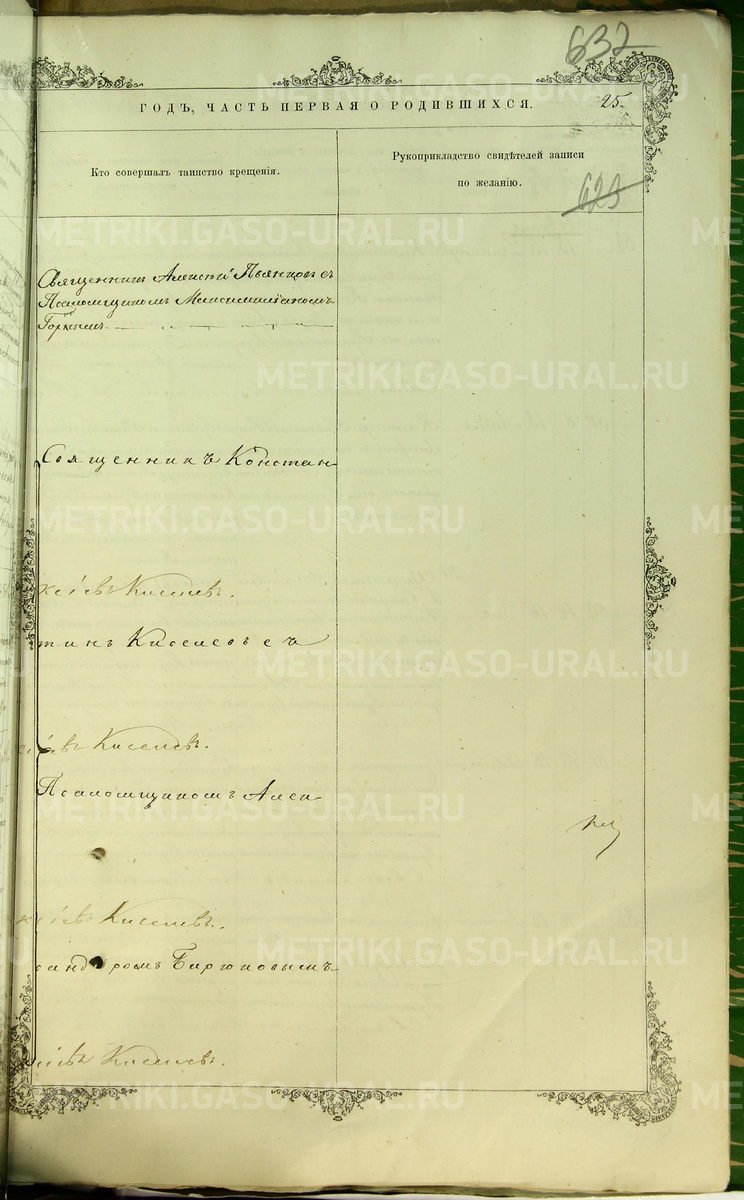 632
ГОДЪ, ЧАСТЬ ПЕРВАЯ О РОДИВШИХСЯ.
25.
Кто совершалъ таинство крещенія.
Рукоприкладство свидѣтелей записи
по желанію.
623
Священникъ Алексѣй Пьянковъ съ
Псаломщикомъ Максимиліаномъ
Горкымъ
Священникъ Констан
Киселевъ.
тинъ Киселевъ съ
Киселевъ.
Псаломщикомъ Алек
Киселевъ.
сандромъ Бирюковымъ
Киселевъ.
METRIKI.GASO-URAL.RU